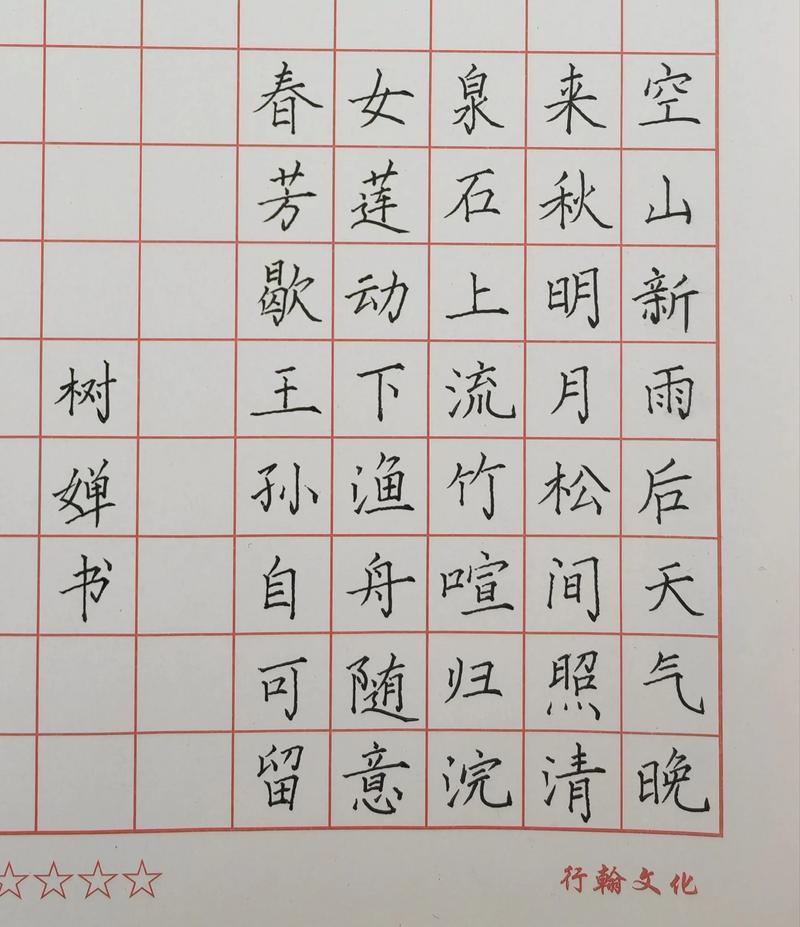 空山新雨后天气晚
来秋明月松间照清
泉石上流竹喧归浣
女莲动下渔舟随意
春芳歇王孙自可留
树婵书
行翰文化